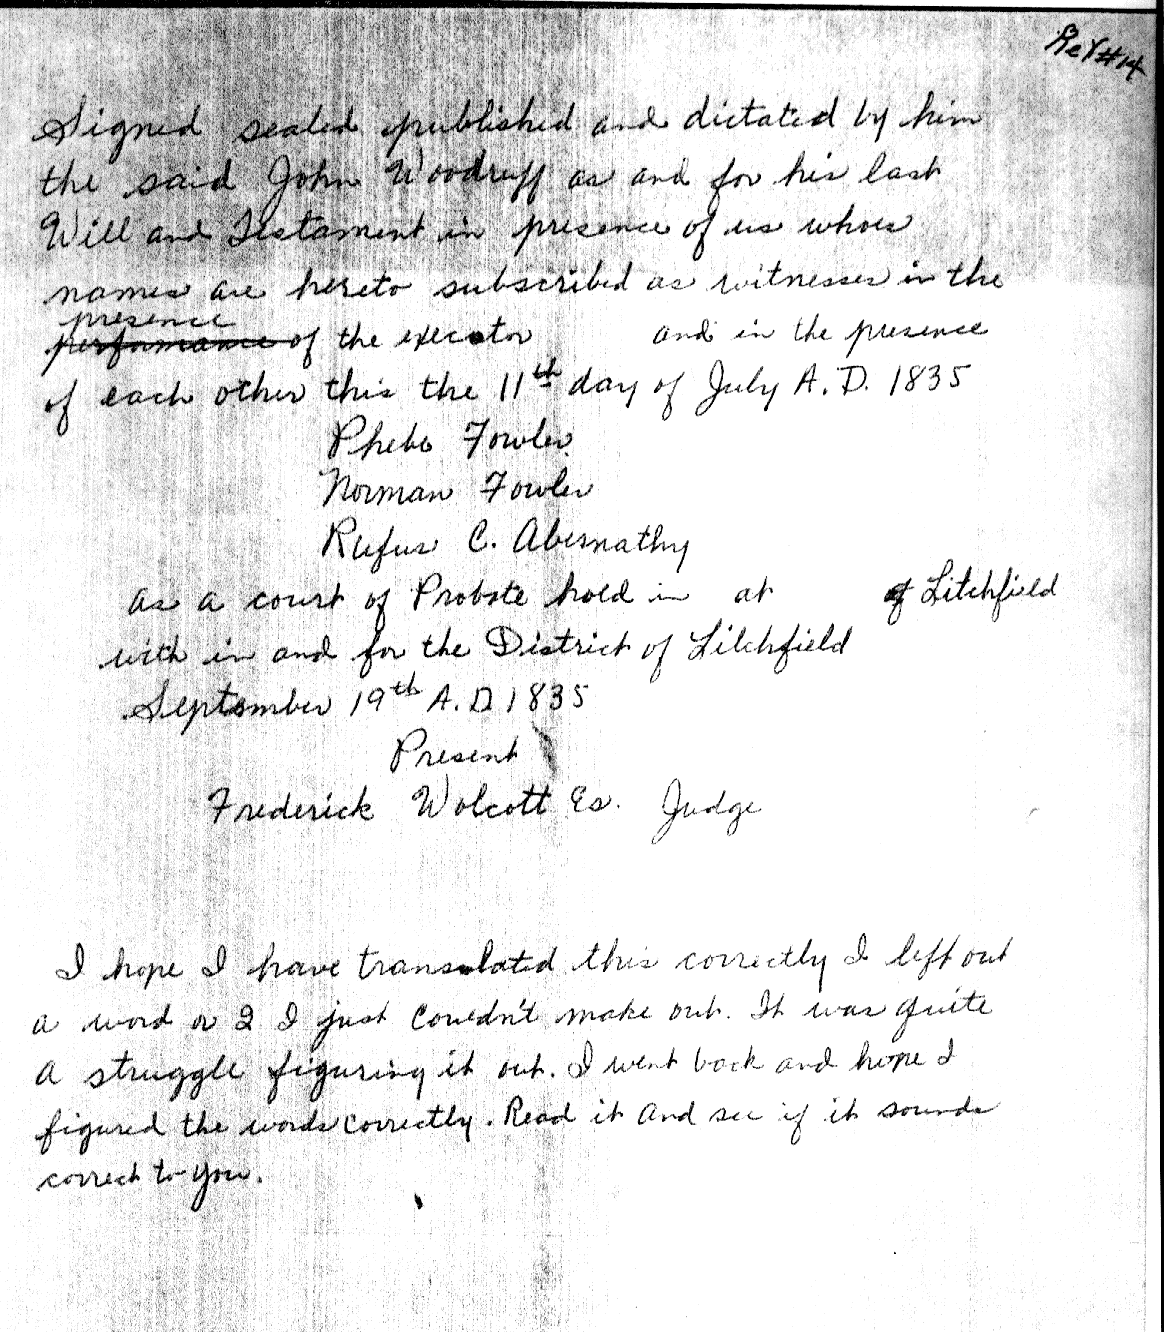 Ref #14
Signed sealed published and dictated by him
the said John Woodruff as and for his last
Will and Testament in presence of us whoes
names are hereto subscribed as witnesses in the
presence
performance of the execotor and in the presence
of each other this the 11th day of July A.D. 1835
Phebe Fowler
Norman Fowler
Rufus C. Abernathy
as a court of Probate hold in at of Litchfield
with in and for the District of Litchfield
September 19th A.D. 1835
Present
Frederick Wolcott Es. Judge
I hope I have translated this correctly I left out
a word or 2 I just couldn't make out. It was quite
a struggle figuring it out. I went back and hope I
figured the words correctly. Read it and see if it sounds
correct to you.